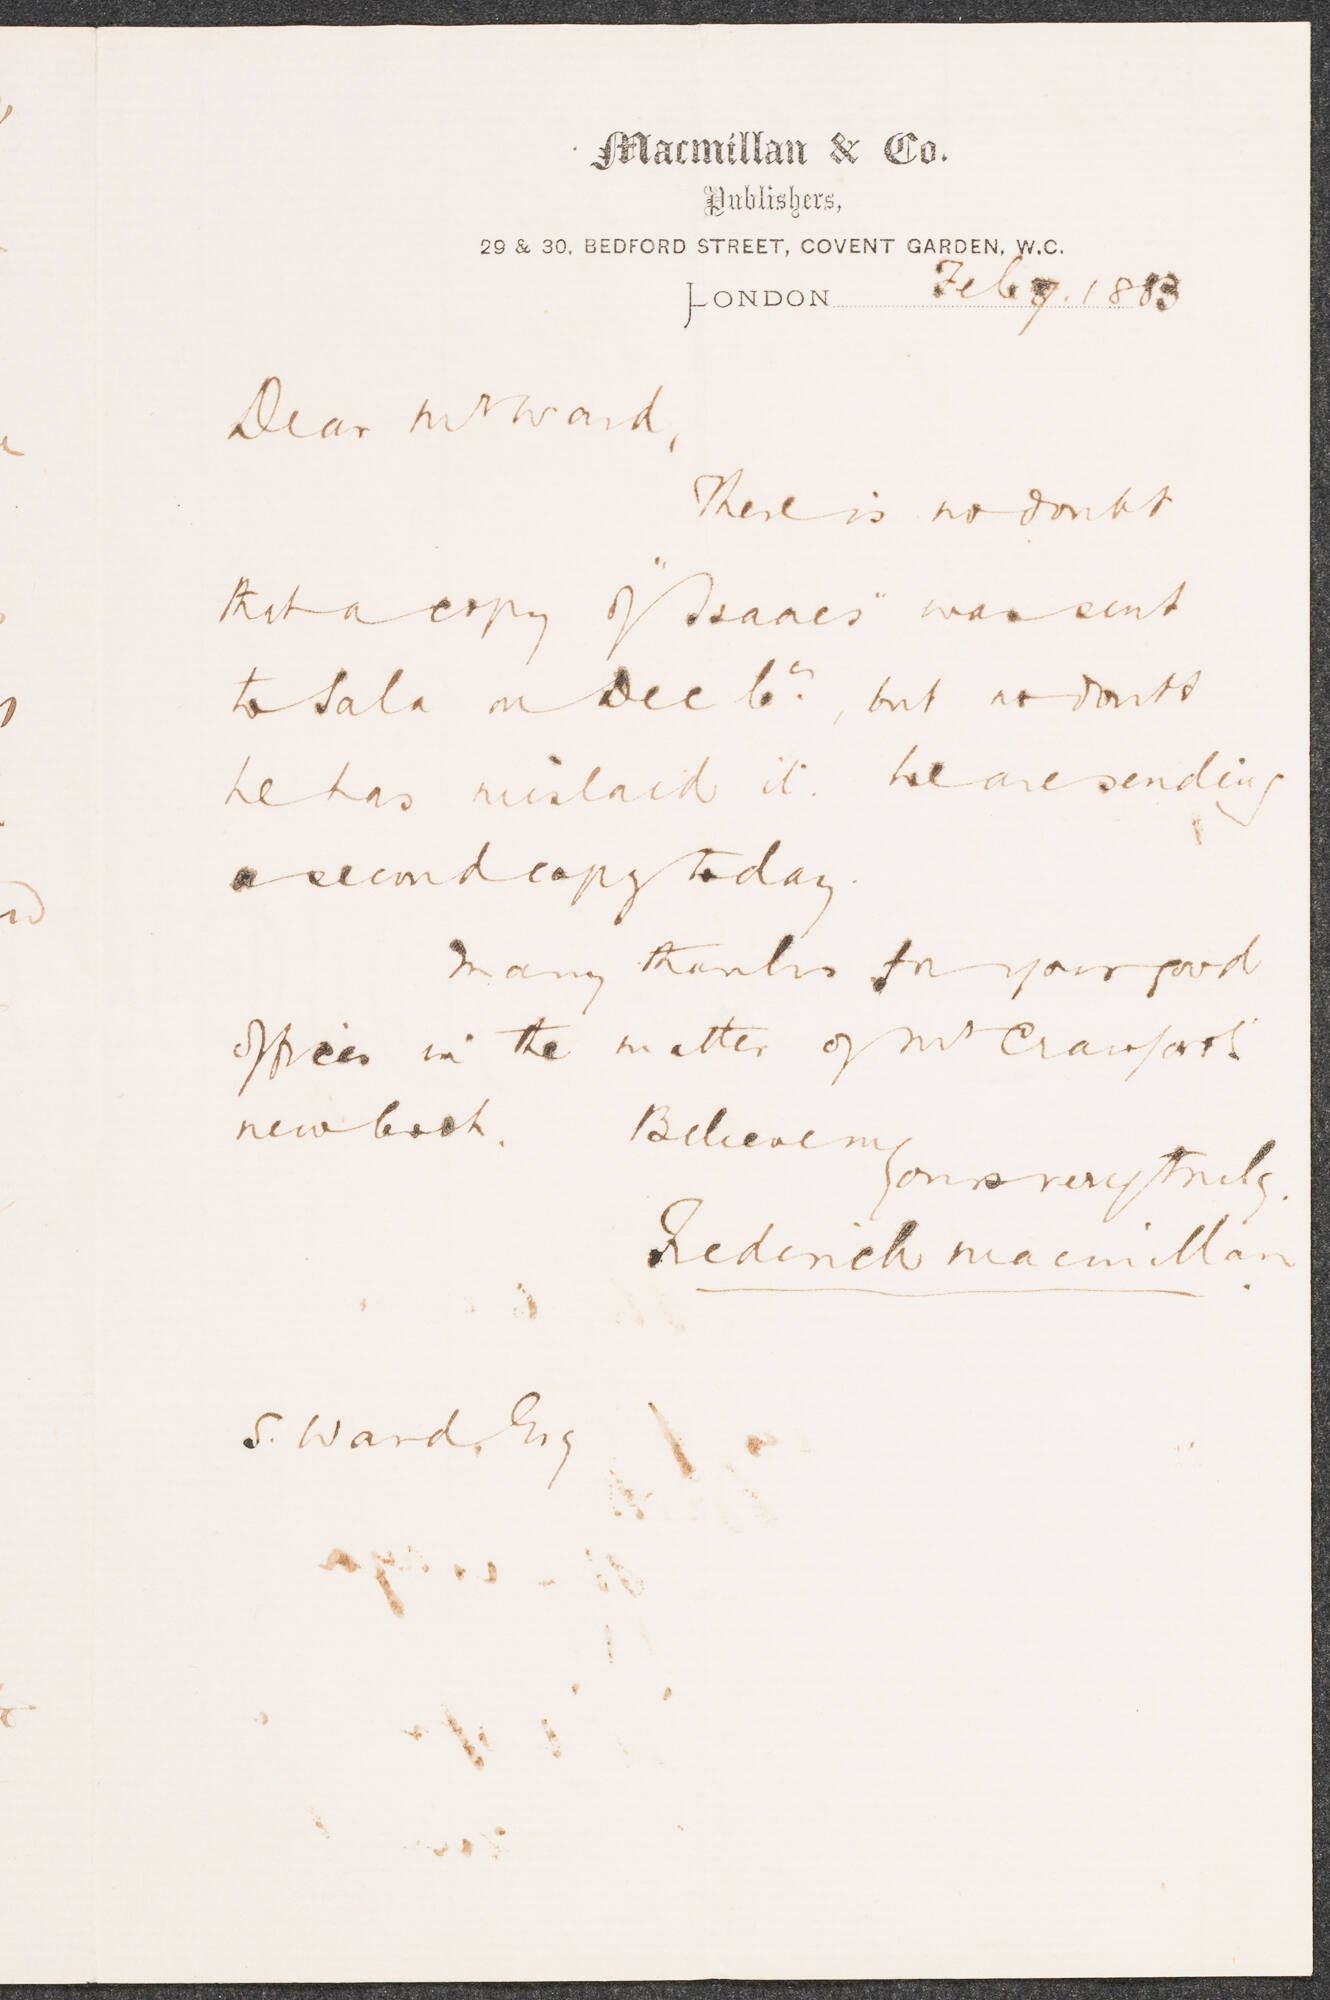 Macmillan & Co.
Publishers,
29 & 30, BEDFORD STREET, COVENT GARDEN, W.C.
LONDON Feb 7. 1883
Dear Mr Ward,
There is no doubt
that a copy of "Isaacs" was sent
to Sala on Dec 6th, but no doubt
he has mislaid it. We are sending
a second copy today.
Many thanks for your good
offices in the matter of Mr Crawford's
new book. Believe me
Yours very truly.
Frederick Macmillan
S. Ward. Esq